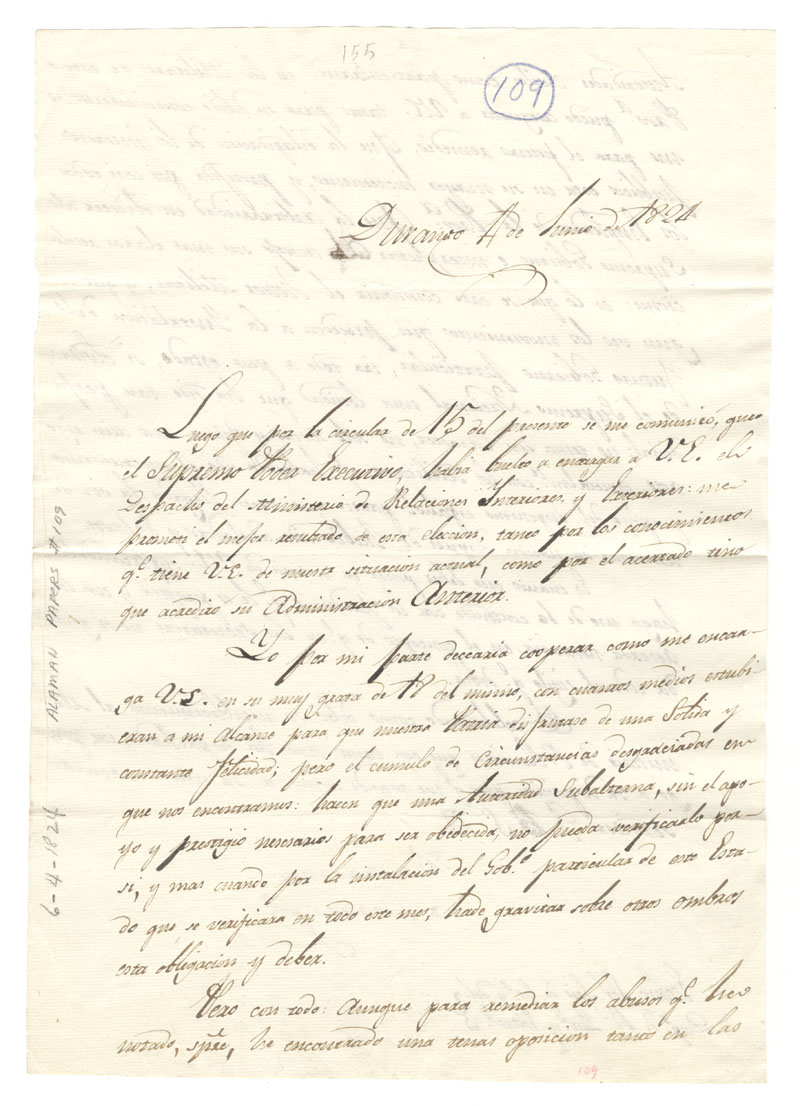 155
109
Durango 4 de Junio de 1824
Luego que por la circular de 15 del presente se me comunicó, que
el Supremo Poder Executivo, habia buelto a encargar a V.E. el
Despacho del Ministerio de Relaciones Interiores y Exteriores: me
prometi el mejor resultado de esta eleccion, tanto por los conocimientos
q.e tiene V.E. de nuestra situacion actual, como por el acertado tino
que acredito su Administracion Anterior.
Yo por mi parte deccaria cooperar como me encar-
ga V.E. en su muy grata de 18 del mismo, con cuantos medios estubi-
eran a mi Alcance para que nuestra Patria disfrutase de una Solida y
constante felicidad; pero el cumulo de Circunstancias desgraciadas en
que nos encontramos: hacen que una Autoridad Subalterna, sin el apo-
yo y prestigio necesarios para ser obedecida, no pueda verificarlo por
si, y mas cuando por la instalacion del Gob.o particular de este Esta-
do que se verificara en todo este mes, hade gravitar sobre otros ombros
esta obligacion y deber.
Pero con todo: Aunque para remediar los abusos q.e he
notado, spre, he encontrado una tenas oposicion tanto en las
109
ALAMAN PAPERS # 109
6-4-1824